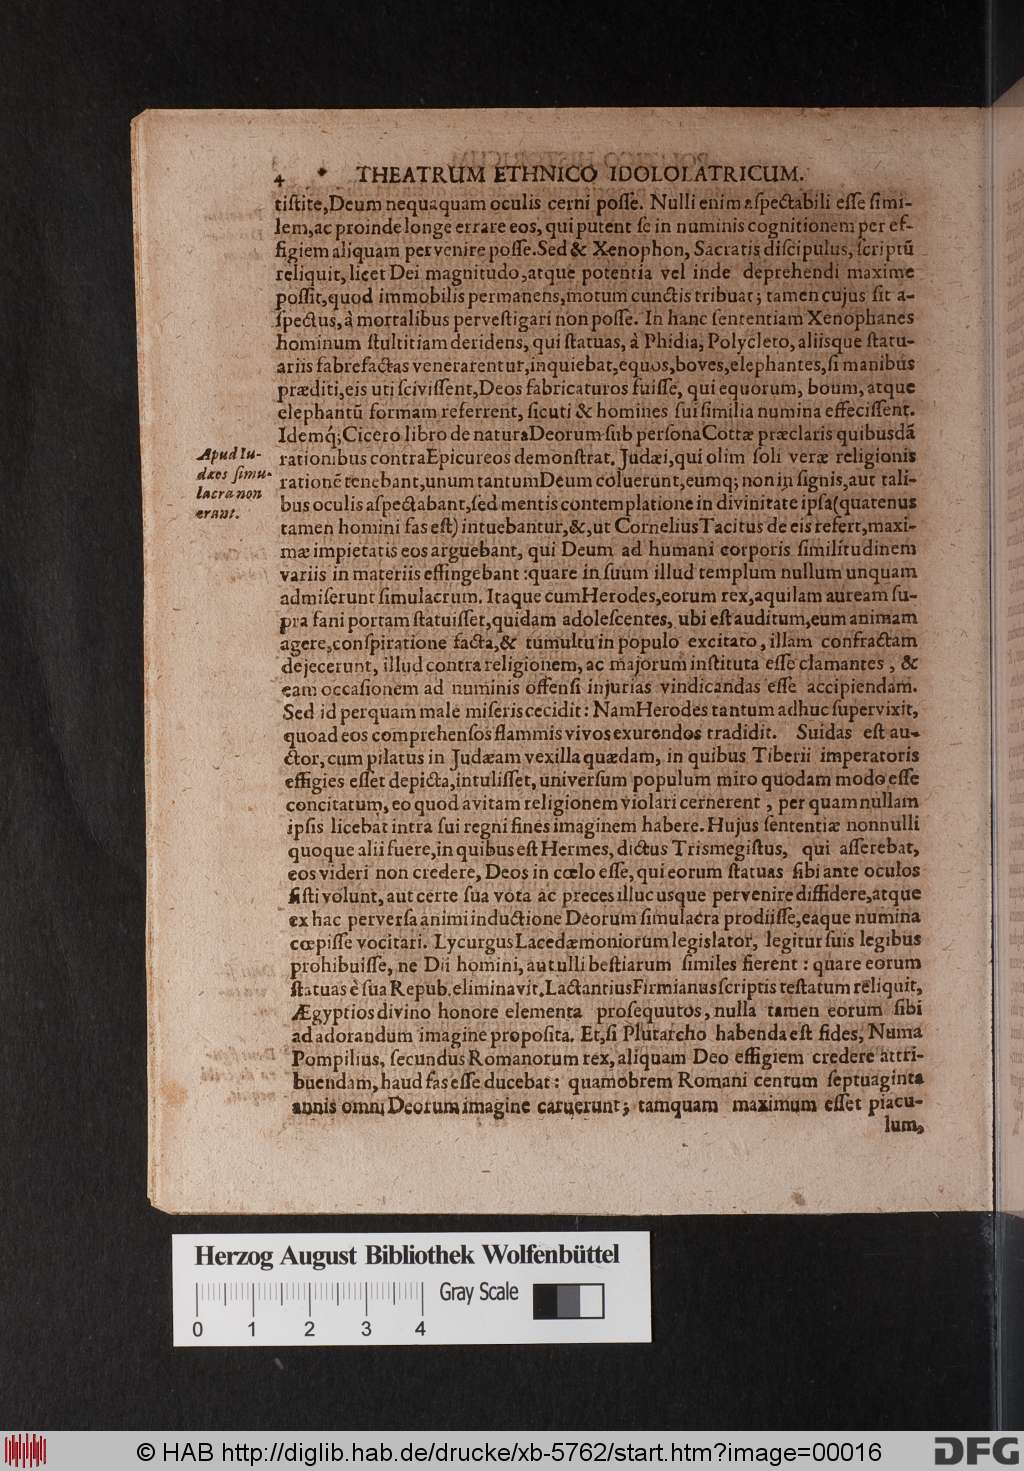 4 * THEATRUM ETHNICO IDOLOLATRICUM.
tiſtite,Deum nequaquam oculis cerni poſſe. Nulli enim aſpectabili eſſe ſimi-
lem,ac proinde longe errare eos, qui putent ſe in numinis cognitionem per ef-
figiem aliquam pervenire poſſe.Sed & Xenophon, Sacratis diſcipulus, ſcriptũ
reliquit, licet Dei magnitudo,atque potentia vel inde deprehendi maxime
poſſit,quod immobilis permanens,motum cunctis tribuat; tamen cujus ſit a-
ſpectus, à mortalibus perveſtigari non poſſe. In hanc ſententiam Xenophanes
hominum ſtultitiam deridens, qui ſtatuas, à Phidia, Polycleto, aliisque ſtatu-
ariis fabrefactas venerarentur,inquiebat,equos,boves,elephantes,ſi manibus
præditi,eis uti ſciviſſent,Deos fabricaturos fuiſſe, qui equorum, boum, atque
elephantũ formam referrent, ſicuti & homines ſui ſimilia numina effeciſſent.
Idemq́;Cicero libro de natura Deorum ſub perſona Cottæ præclaris quibusdã
rationibus contra Epicureos demonſtrat. Judæi,qui olim ſoli veræ religionis
rationẽ tenebant,unum tantum Deum coluerunt,eumq; non in ſignis,aut tali-
bus oculis aſpectabant,ſed mentis contemplatione in divinitate ipſa(quatenus
tamen homini fas eſt) intuebantur,&,ut Cornelius Tacitus de eis refert,maxi-
mæ impietatis eos arguebant, qui Deum ad humani corporis ſimilitudinem
variis in materiis effingebant :quare in ſuum illud templum nullum unquam
admiſerunt ſimulacrum. Itaque cum Herodes,eorum rex,aquilam auream ſu-
pra fani portam ſtatuiſſet,quidam adoleſcentes, ubi eſt auditum,eum animam
agere,conſpiratione facta,& tumultu in populo excitato, illam confractam
dejecerunt, illud contra religionem, ac majorum inſtituta eſſe clamantes, &
eam occaſionem ad numinis offenſi injurias vindicandas eſſe accipiendam.
Sed id perquam male miſeris cecidit: Nam Herodes tantum adhuc ſupervixit,
quoad eos comprehenſos flammis vivos exurendos tradidit. Suidas eſt au-
ctor, cum pilatus in Judæam vexilla quædam, in quibus Tiberii imperatoris
effigies eſſet depicta,intuliſſet, univerſum populum miro quodam modo eſſe
concitatum, eo quod avitam religionem violari cernerent, per quam nullam
ipſis licebat intra ſui regni fines imaginem habere. Hujus ſententiæ nonnulli
quoque alii fuere,in quibus eſt Hermes, dictus Trismegiſtus, qui aſſerebat,
eos videri non credere, Deos in cœlo eſſe, qui eorum ſtatuas ſibi ante oculos
ſiſti volunt, aut certe ſua vota ac preces illuc usque pervenire diffidere,atque
ex hac perverſa animi inductione Deorum ſimulacra prodiiſſe,eaque numina
cœpiſſe vocitari. Lycurgus Lacedæmoniorum legislator, legitur ſuis legibus
prohibuiſſe, ne Dii homini, aut ulli beſtiarum ſimiles fierent : quare eorum
ſtatuas è ſua Repub.eliminavit.Lactantius Firmianus ſcriptis teſtatum reliquit,
Ægyptios divino honore elementa proſequutos, nulla tamen eorum ſibi
ad adorandum imagine propoſita. Et,ſi Plutarcho habenda eſt fides, Numa
Pompilius, ſecundus Romanorum rex, aliquam Deo effigiem credere attri-
buendam, haud fas eſſe ducebat : quamobrem Romani centum ſeptuaginta
annis omni Deorum imagine caruerunt; tamquam maximum eſſet piacu-
lum,
Apud Iu-
dæos ſimu-
lacra non
erant.
Herzog August Bibliothek Wolfenbüttel
Gray Scale
0 1 2 3 4
© HAB http://diglib.hab.de/drucke/xb-5762/start.htm?image=00016
DFG